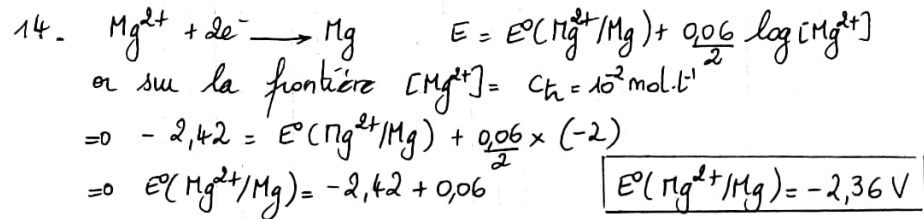 14. Mg²⁺ + 2e⁻ → Mg E = E°(Mg²⁺/Mg) + 0,06/2 log [Mg²⁺]
or sur la frontière [Mg²⁺] = Ctr = 10⁻² mol.L⁻¹
⇒ - 2,42 = E°(Mg²⁺/Mg) + 0,06/2 × (-2)
⇒ E°(Mg²⁺/Mg) = - 2,42 + 0,06 E°(Mg²⁺/Mg) = - 2,36 V